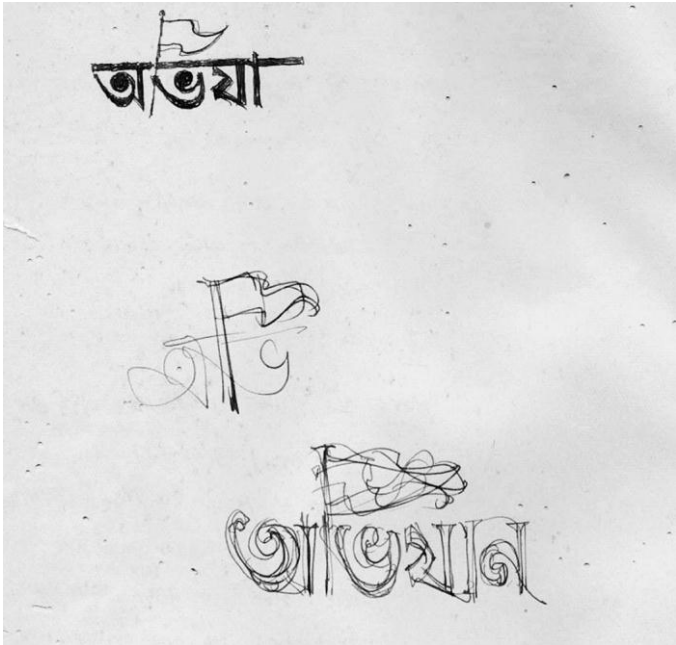 অভিযা
অভি
অভিযান